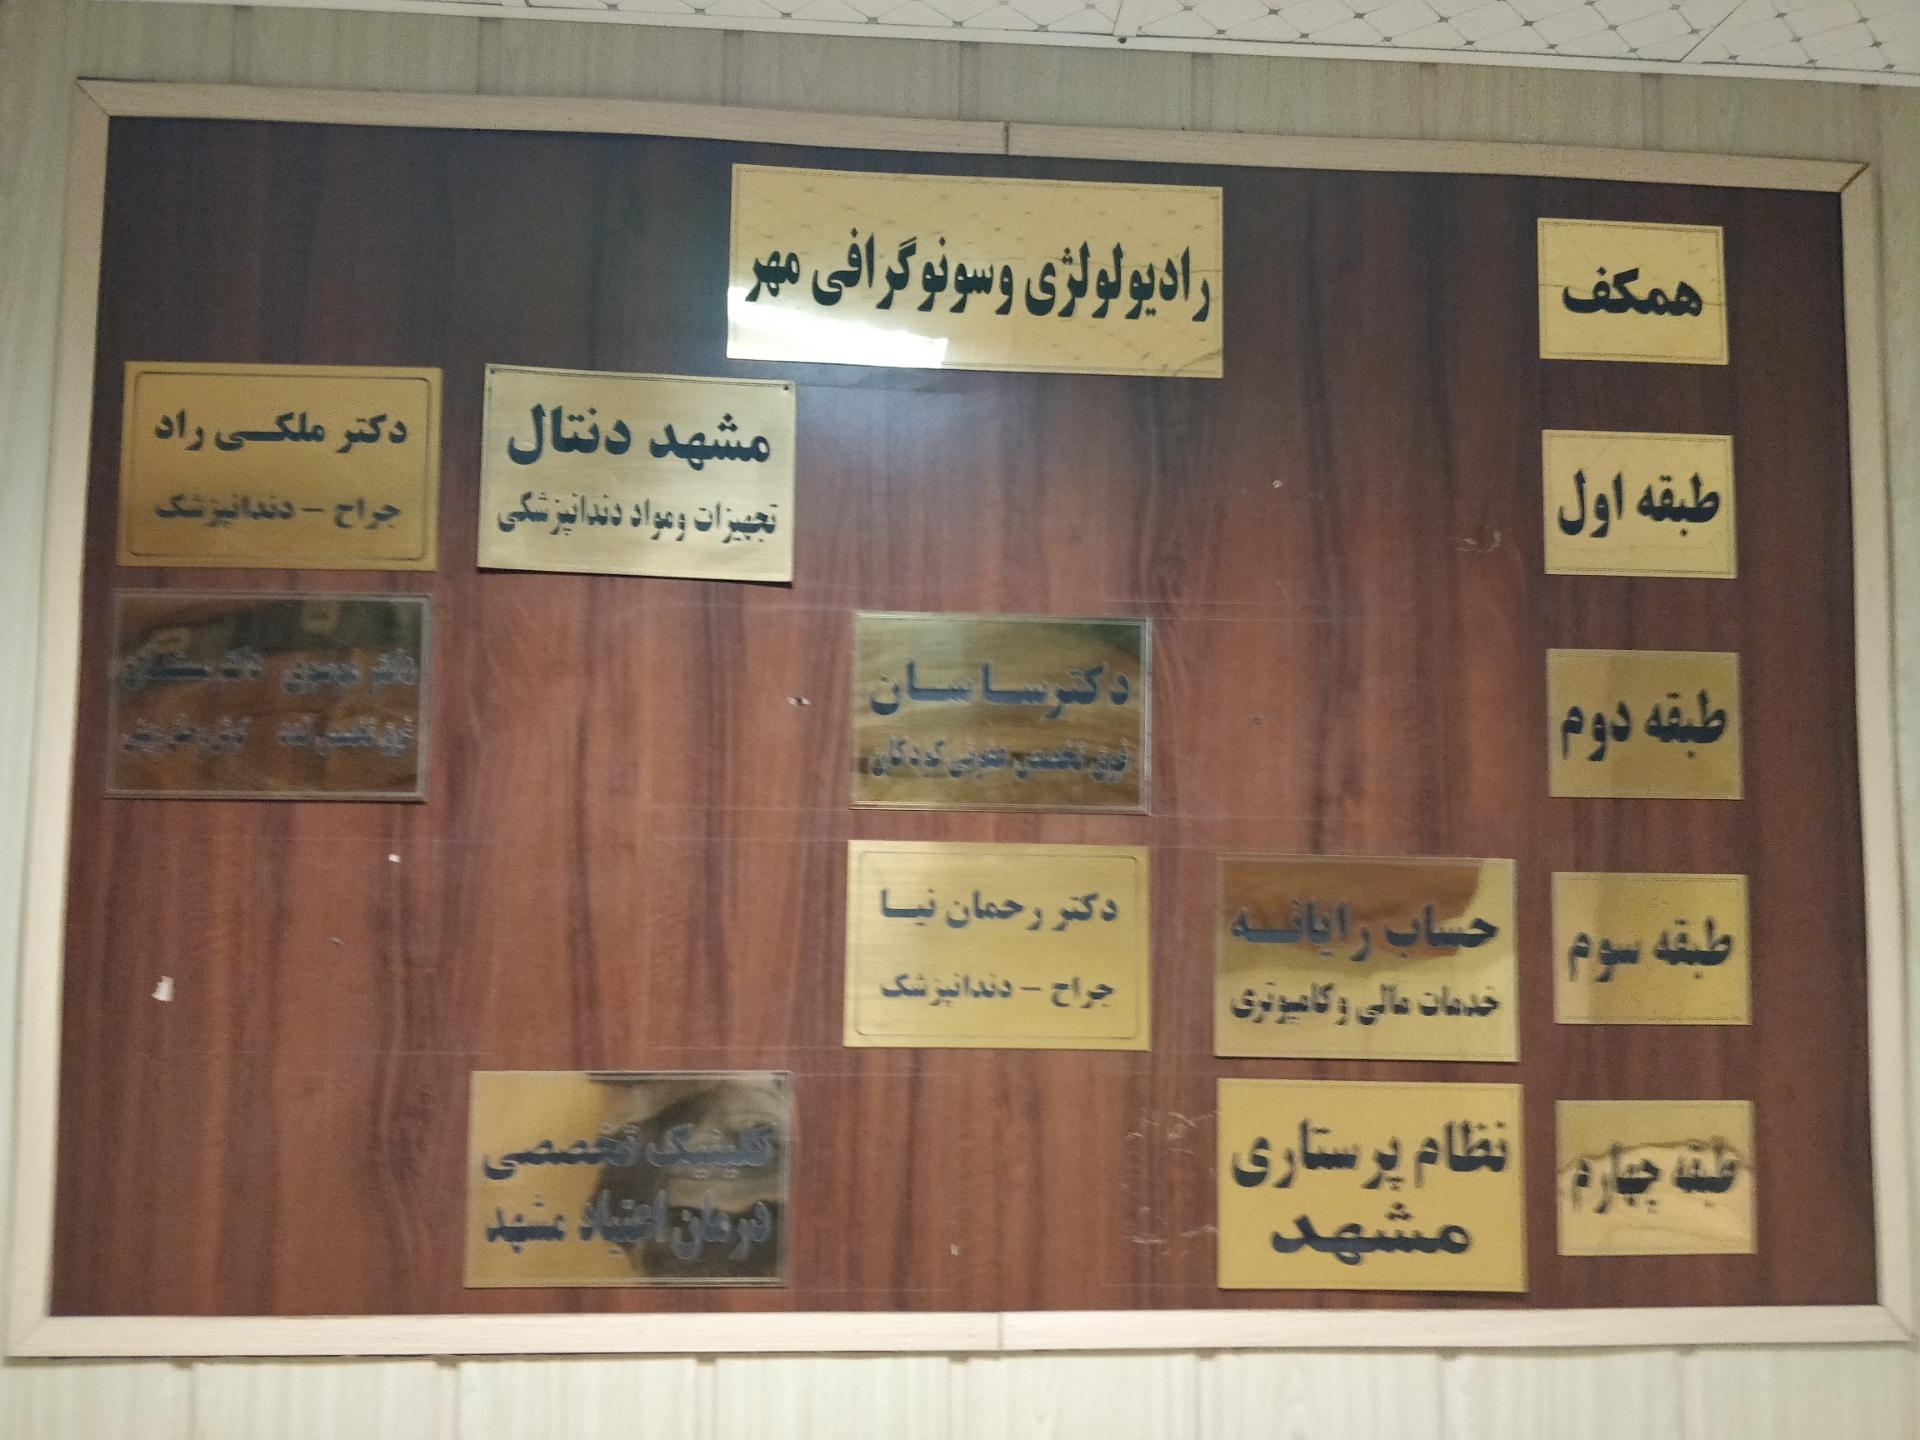 همکف
رادیولوژی وسونوگرافی مهر
طبقه اول
مشهد دنتال
تجهیزات ومواد دندانپزشکی
دکتر ملکی راد
جراح - دندانپزشک
طبقه دوم
دکترساسان
فوق تخصص عفونی کودکان
دکتر دکتر
فوق تخصص
طبقه سوم
حساب رایانه
خدمات مالی وکامپیوتری
دکتر رحمان نیا
جراح - دندانپزشک
طبقه چهارم
نظام پرستاری
مشهد
کلینیک تخصصی
درمان اعتیاد مشهد